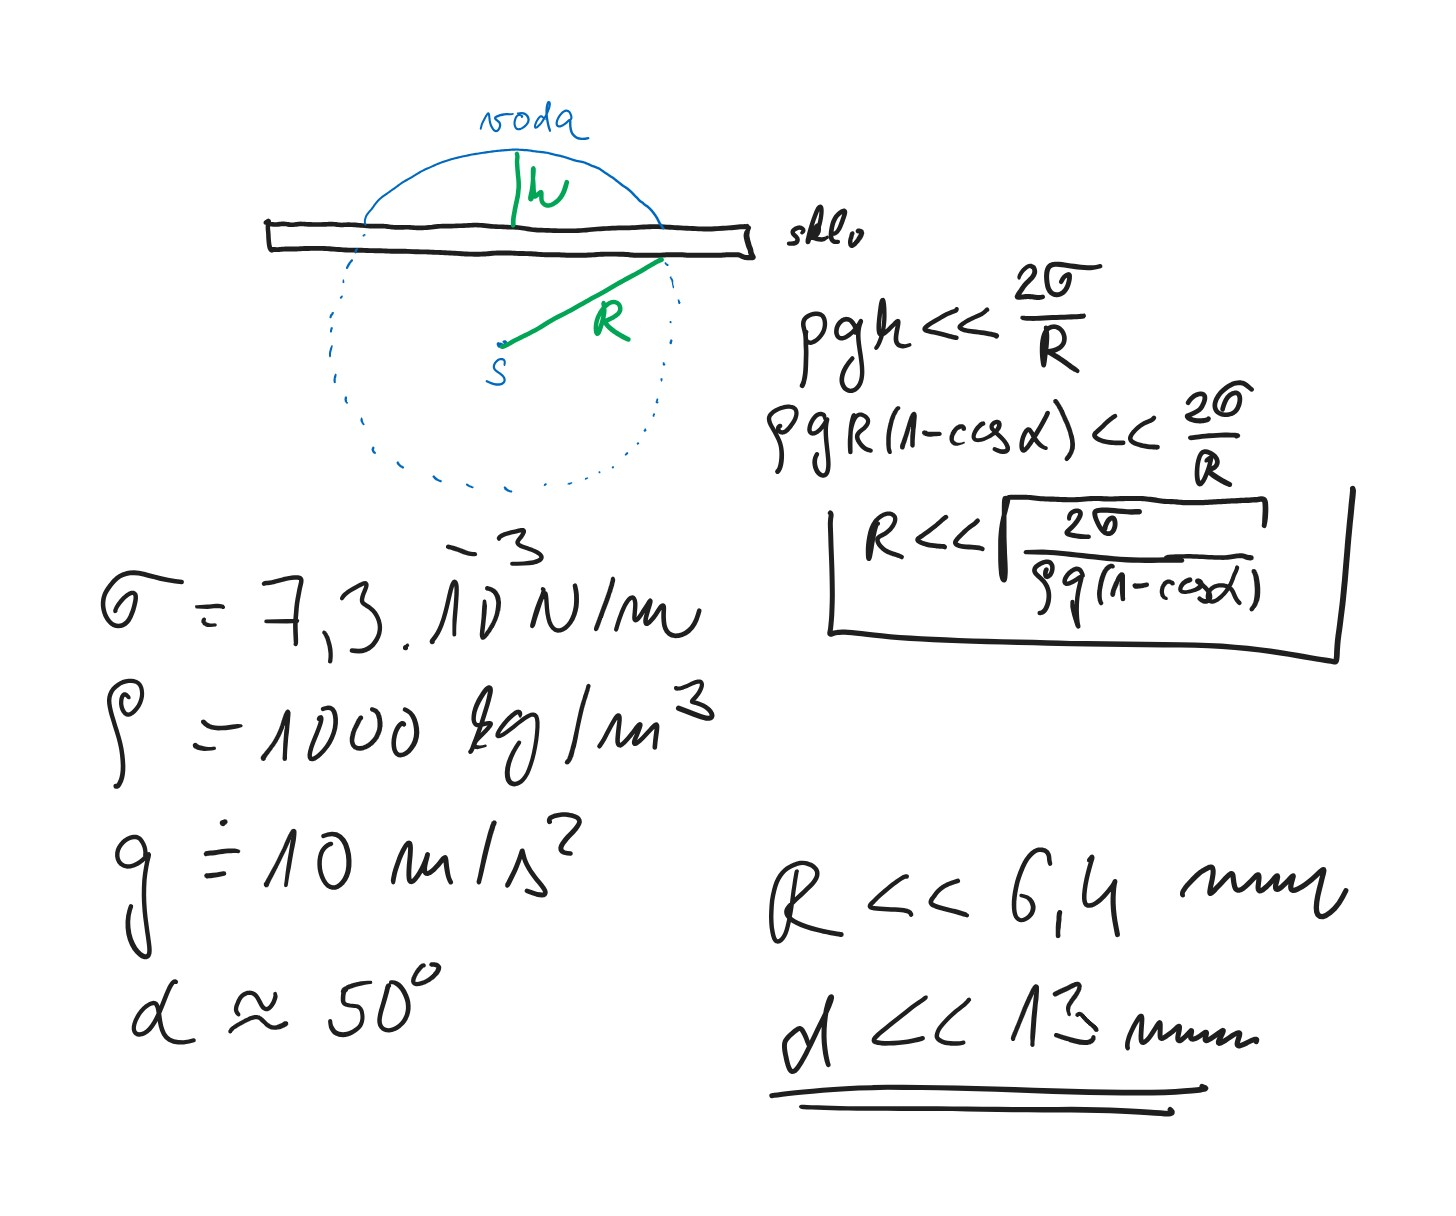 voda
h
sklo
R
S
ρgh << 2σ/R
ρgR(1-cosα) << 2σ/R
R << √(2σ/(ρg(1-cosα)))
σ = 7,3 . 10⁻³ N/m
ρ = 1000 kg/m³
g ≐ 10 m/s²
α ≈ 50°
R << 6,4 mm
d << 13 mm